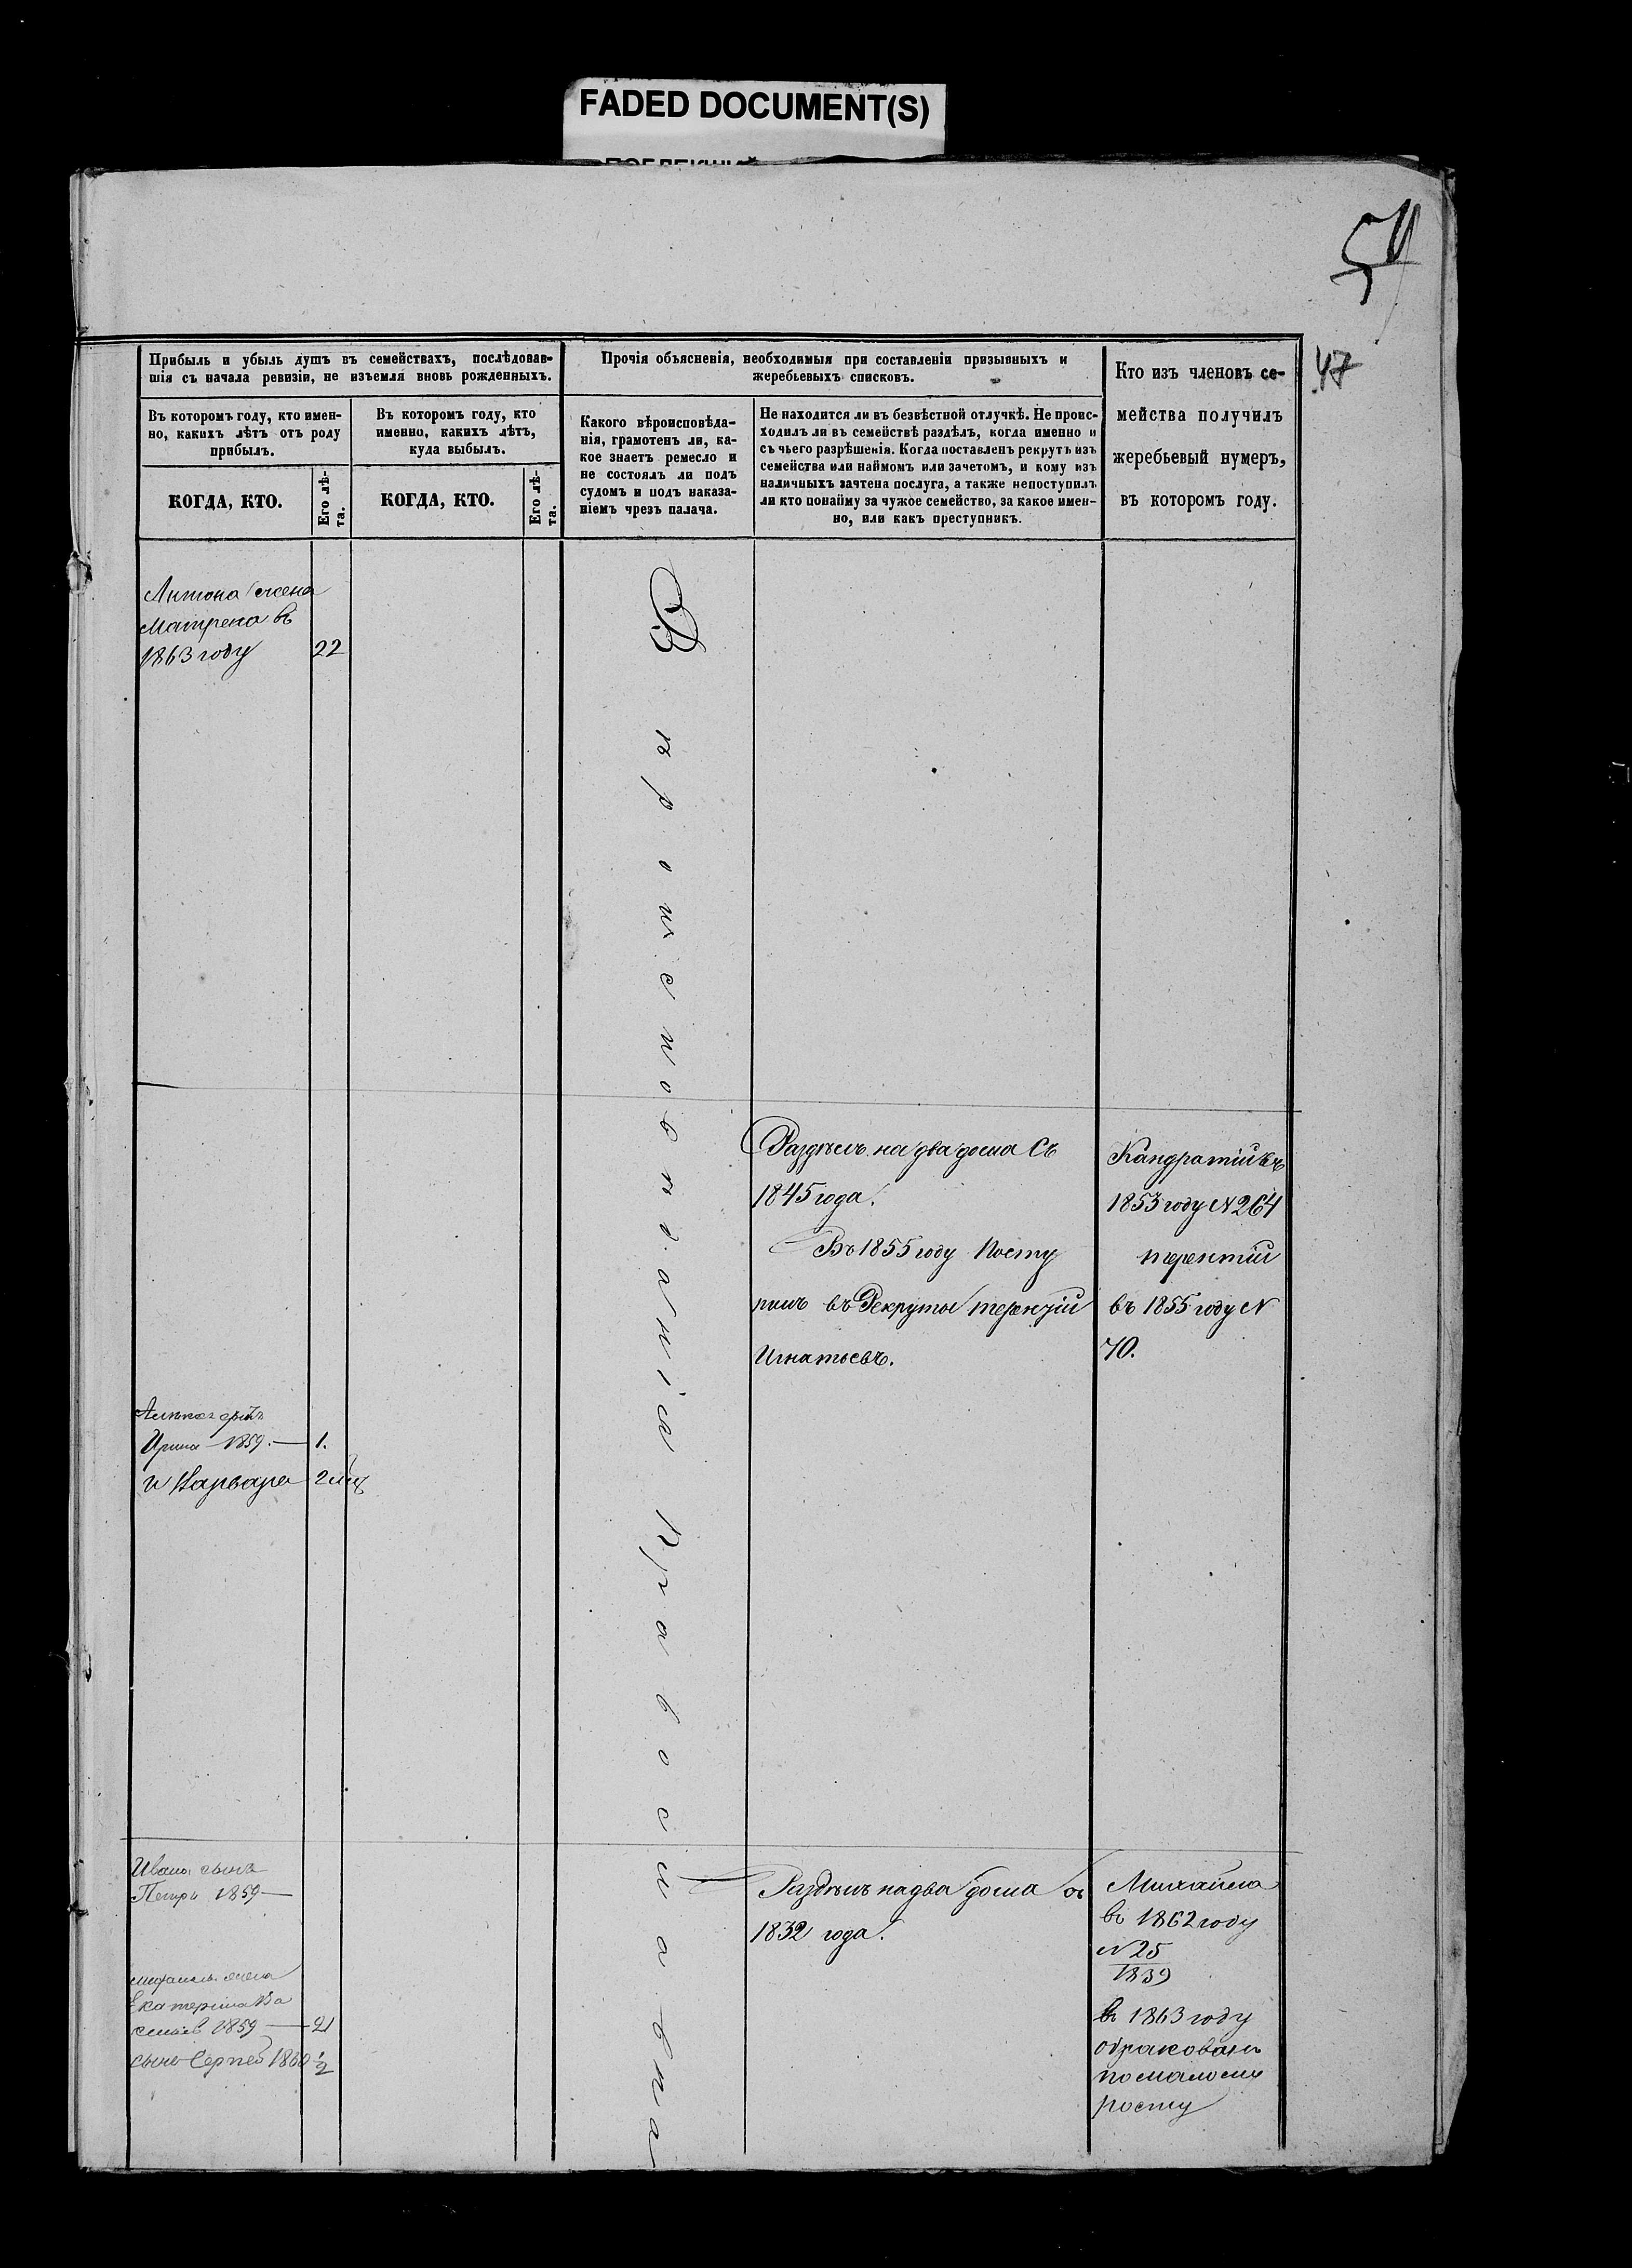 FADED DOCUMENT(S)
54
47
Прибыль и убыль душъ въ семействахъ, послѣдовав-
шія съ начала ревизіи, не изъемля вновь рожденныхъ.
Въ которомъ году, кто имен-
но, какихъ лѣтъ отъ роду
прибылъ.
КОГДА, КТО.
Его лѣ-
та.
Въ которомъ году, кто
именно, какихъ лѣтъ,
куда выбылъ.
КОГДА, КТО.
Его лѣ-
та.
Прочія объясненія, необходимыя при составленіи призывныхъ и
жеребьевыхъ списковъ.
Какого вѣроисповѣда-
нія, грамотенъ ли, ка-
кое знаетъ ремесло и
не состоялъ ли подъ
судомъ и подъ наказа-
ніемъ чрезъ палача.
Не находится ли въ безвѣстной отлучкѣ. Не проис-
ходилъ ли въ семействѣ раздѣлъ, когда именно и
съ чьего разрѣшенія. Когда поставленъ рекрутъ изъ
семейства или наймомъ или зачетомъ, и кому изъ
наличныхъ зачтена послуга, а также непоступилъ
ли кто понайму за чужое семейство, за какое имен-
но, или какъ преступникъ.
Кто изъ членовъ се-
мейства получилъ
жеребьевый нумеръ,
въ которомъ году.
Антона жена
Матрена въ
1863 году 22
Вѣроисповеданія Православна
Раздѣлъ на два дома Съ
1845 года.
Въ 1855 году Посту
пилъ въ Рекруты терентій
Игнатьевъ.
Кандратій въ
1853 году N 264
терентій
въ 1855 году N
70.
Ирина 1859. — 1.
и Варвара 2 мц
Ивана сынъ
Петръ 1859 —
жена
Екатерина Ва
1859 — 21
сынъ Сергей 1860 1/2
Раздѣлъ на два дома съ
1832 года.
Михайла
въ 1862 году
N 25
1839
въ 1863 году
обракованъ
по малому
росту